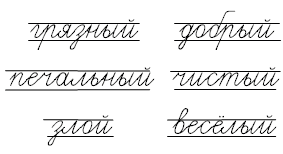 грязный добрый
печальный чистый
злой весёлый